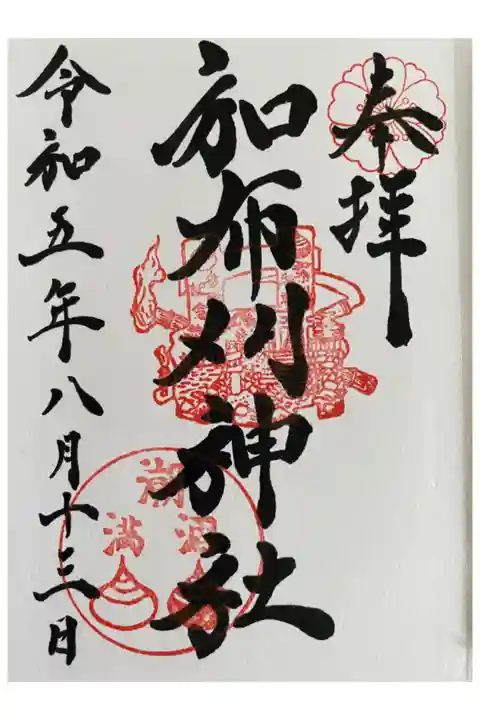 奉拝
和布刈神社
令和五年八月十三日
潮
満 涸